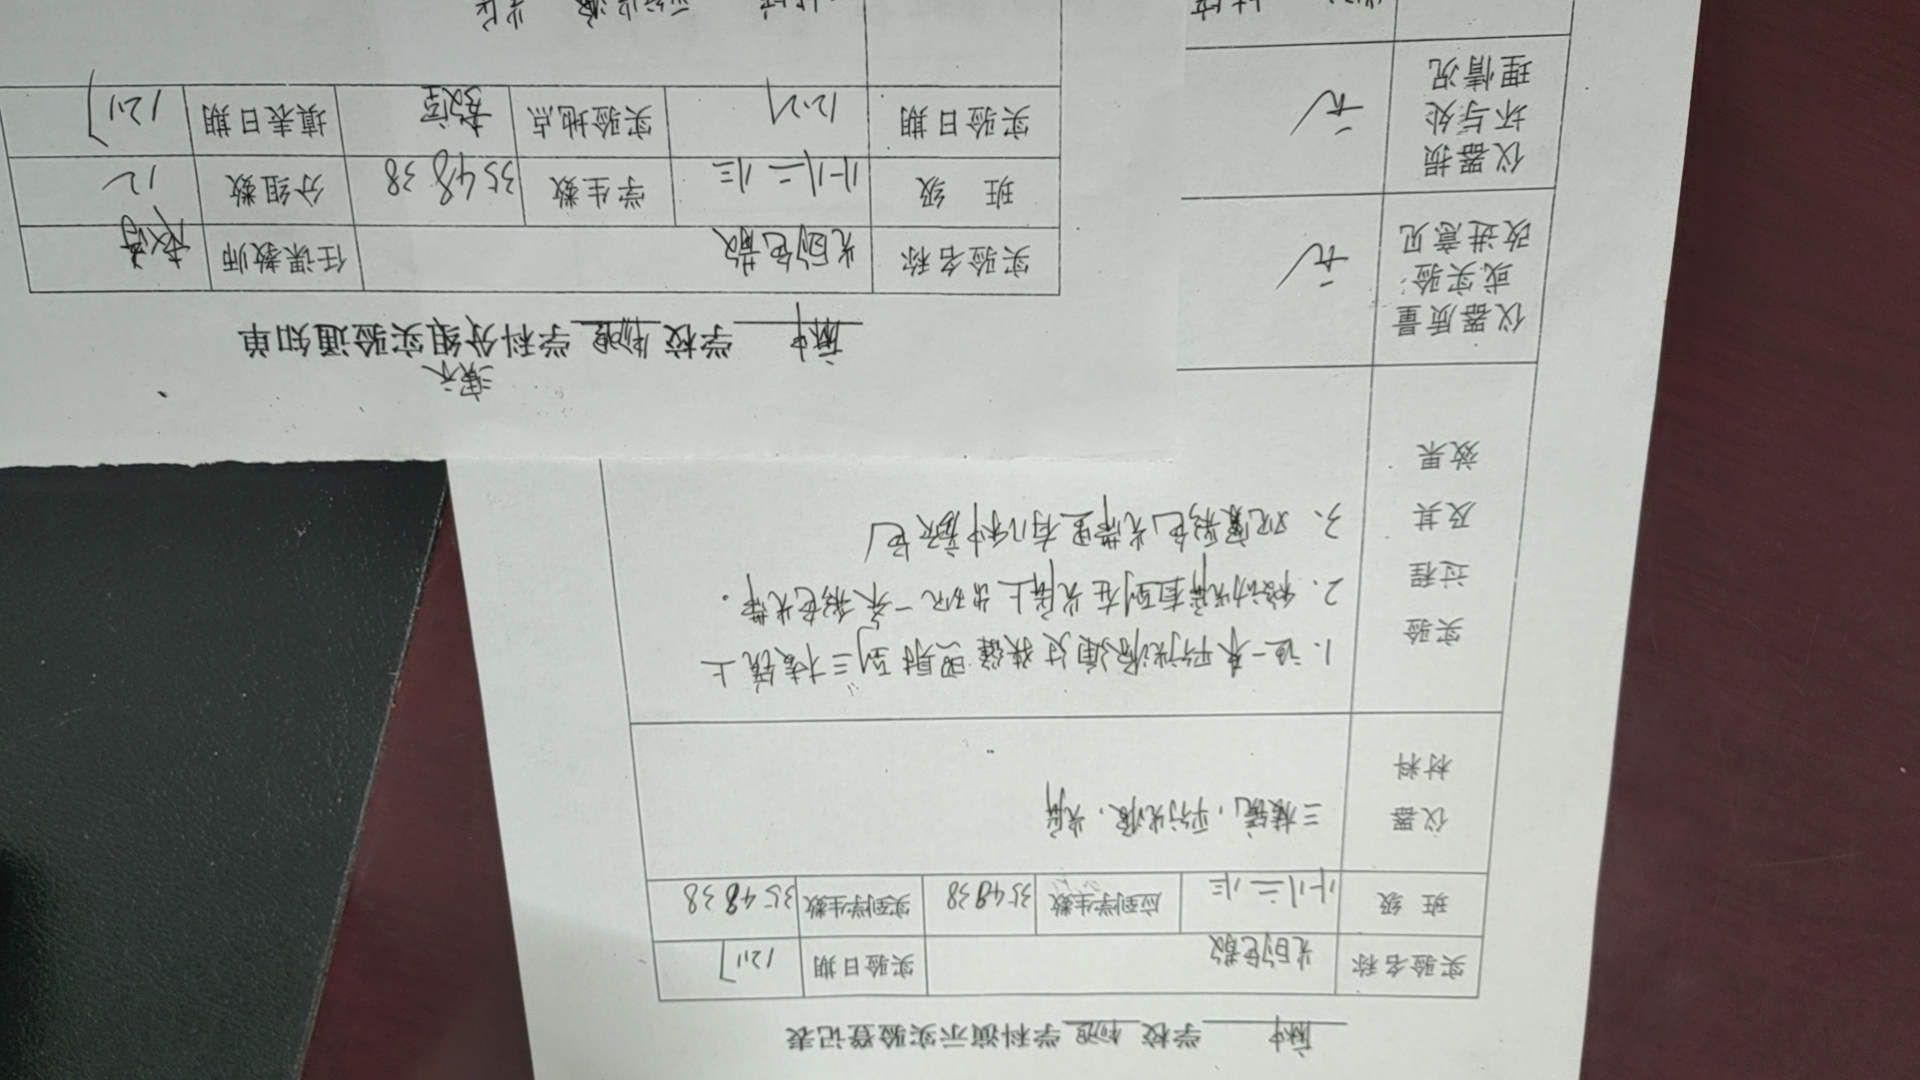 麻中 学校 物理 学科演示实验登记表
实验名称 光的色散 实验日期 1217
班 级 八一八二八三 应到学生数 35 48 38 实到学生数 35 48 38
仪器 三棱镜，平行光源，光屏
材料
1. 让一束平行光源通过狭缝照射到三棱镜上
实验
2. 移动光屏直到在光屏上出现一条彩色光带.
过程
3、观察彩色光带里有几种颜色
及其
效果
仪器质量
或实验 无
改进意见
仪器损
坏与处 无
理情况
演示
麻中 学校 物理 学科分组实验通知单
实验名称 光的色散 任课教师
班 级 八一八二八三 学生数 35 48 38 分组数 12
实验日期 实验地点 教室 填表日期 1217
平行光源 光屏